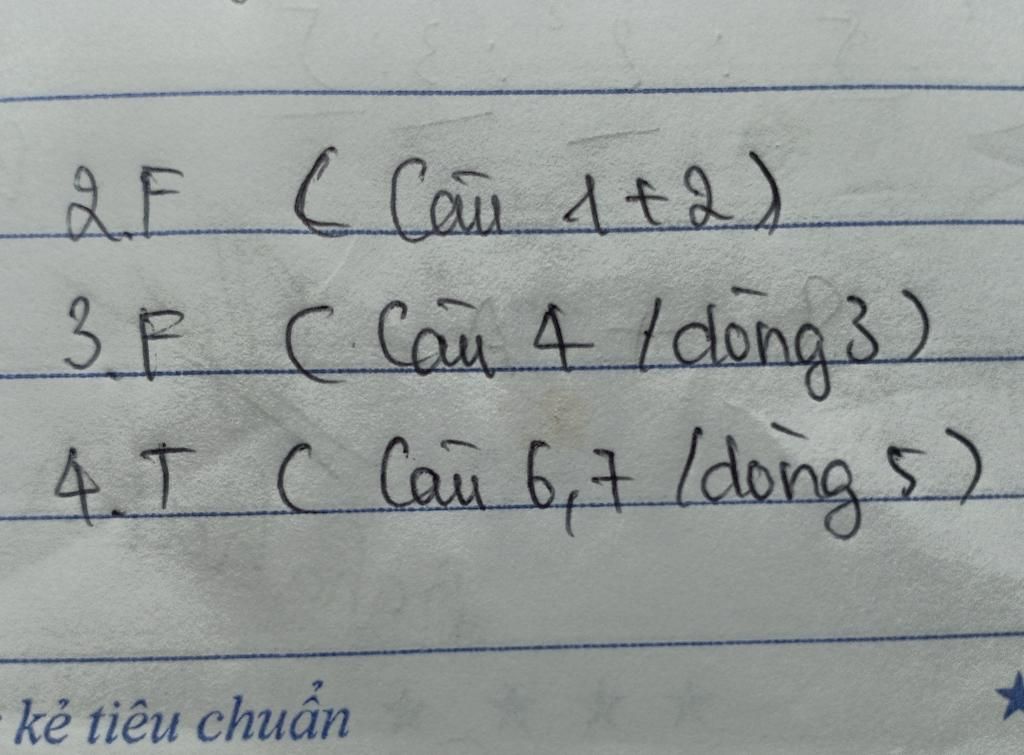 2. F ( Câu 1+2 )
3. F ( Câu 4 / dòng 3 )
4. T ( Câu 6,7 / dòng 5 )
kẻ tiêu chuẩn